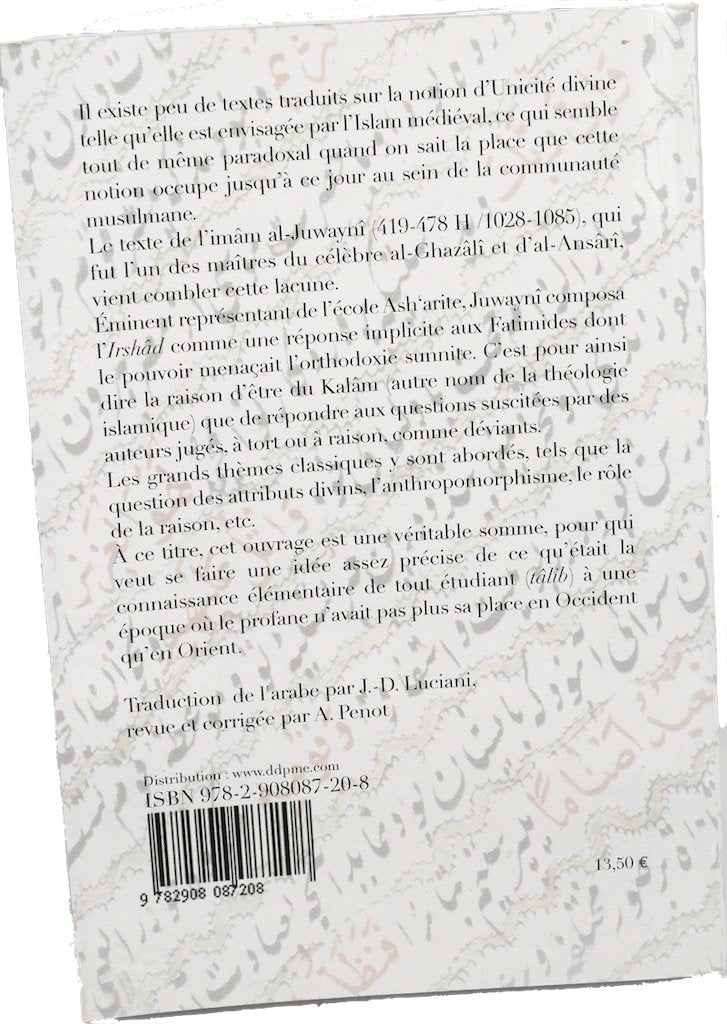 Il existe peu de textes traduits sur la notion d'Unicité divine
telle qu'elle est envisagée par l'Islam médiéval, ce qui semble
tout de même paradoxal quand on sait la place que cette
notion occupe jusqu'à ce jour au sein de la communauté
musulmane.
Le texte de l'imâm al-Juwaynî (419-478 H /1028-1085), qui
fut l'un des maîtres du célèbre al-Ghazâlî et d'al-Ansârî,
vient combler cette lacune.
Éminent représentant de l'école Ash‘arite, Juwaynî composa
l'Irshâd comme une réponse implicite aux Fatimides dont
le pouvoir menaçait l'orthodoxie sunnite. C'est pour ainsi
dire la raison d'être du Kalâm (autre nom de la théologie
islamique) que de répondre aux questions suscitées par des
auteurs jugés, à tort ou à raison, comme déviants.
Les grands thèmes classiques y sont abordés, tels que la
question des attributs divins, l'anthropomorphisme, le rôle
de la raison, etc.
À ce titre, cet ouvrage est une véritable somme, pour qui
veut se faire une idée assez précise de ce qu'était la
connaissance élémentaire de tout étudiant (tâlib) à une
époque où le profane n'avait pas plus sa place en Occident
qu'en Orient.
Traduction de l'arabe par J.-D. Luciani,
revue et corrigée par A. Penot
Distribution : www.ddpme.com
ISBN 978-2-908087-20-8
9 782908 087208
13,50 €